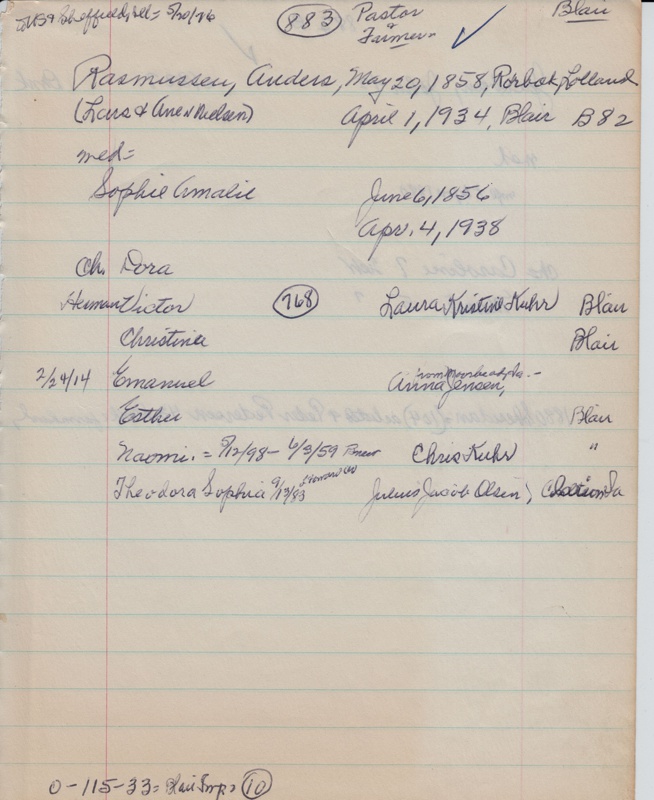 Sheffield, Ill = 5/20/76 883 Pastor Blair
& Farmer =
Rasmussen, Anders, May 20, 1858, Rorbak, Lolland
(Lars & Ane Nielsen) April 1, 1934, Blair B82
med =
Sophie Amalie June 6, 1856
Apr. 4, 1938
Ch. Dora
Herman Victor 768 Laura Kristine Kuhr Blair
Christina Blair
from Moorhead, Ia. -
2/24/14 Emanuel Anna Jensen,
Esther Blair
Naomi. = 5/12/98 - 6/3/59 Chris Kuhr "
Theodora Sophia 9/13/83 Julius Jacob Olsen, Ia
0-115-33 = Blair 10